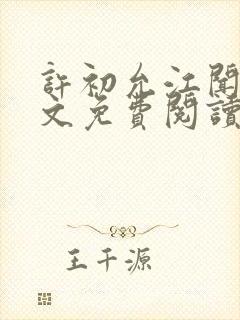 許初允江聞
文免費閱讀
王千源